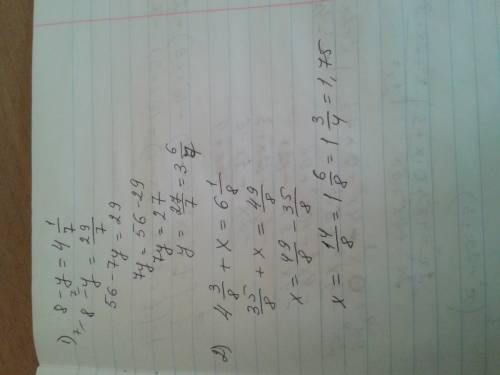 1) 8 - y = 4 1/7
8 - y = 29/7
56 - 7y = 29
7y = 56 - 29
7y = 27
y = 27/7 = 3 6/7
2) 4 3/8 + x = 6 1/8
35/8 + x = 49/8
x = 49/8 - 35/8
x = 14/8 = 1 6/8 = 1 3/4 = 1,75